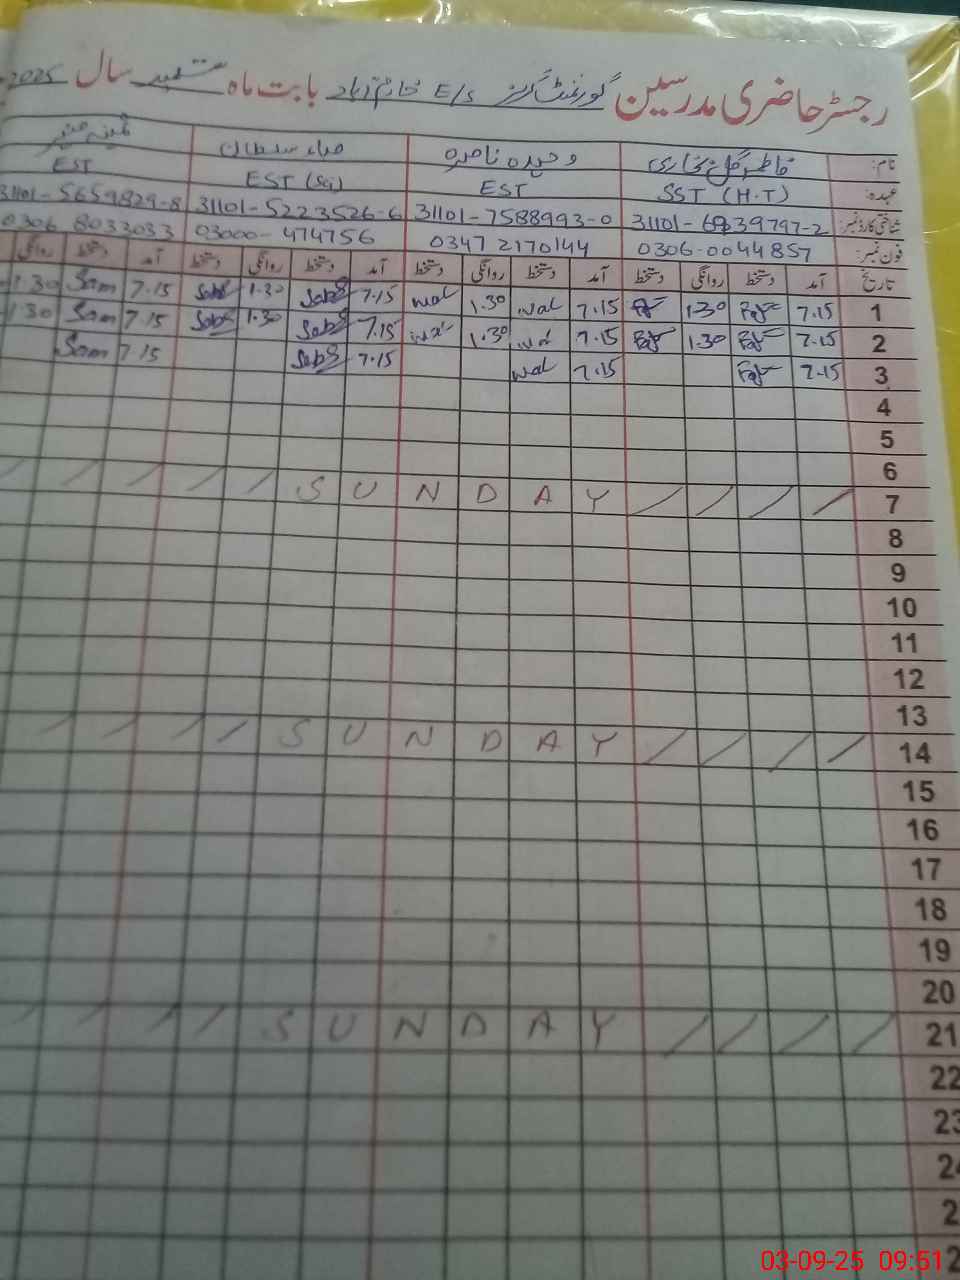 رجسٹر حاضری مدرسین گورنمنٹ گرلز E/S خانم آباد بابت ماہ ستمبر سال 2025
نام: فاطمہ گل بخاری وحیدہ ناصرہ صباء سلطان ثمینہ منیر
عہدہ: SST (H.T) EST EST (Sci) EST
شناختی کارڈ نمبر: 31101-6939797-2 31101-7588993-0 31101-5223526-6 31101-5659829-8
فون نمبر: 0306-0044857 0347 2170144 03000-474756 0306 8033033
تاریخ آمد دستخط روانگی دستخط آمد دستخط روانگی دستخط آمد دستخط روانگی دستخط آمد دستخط روانگی
1 7.15 1.30 7.15 wal 1.30 wal 7.15 Sabs 1.30 Sabs 7.15 Sam 1.30
2 7.15 1.30 7.15 wal 1.30 wal 7.15 Sabs 1.30 Sabs 7.15 Sam 1.30
3 7.15 7.15 wal 7.15 Sabs 7.15 Sam
4
5
6
7 SUNDAY
8
9
10
11
12
13
14 SUNDAY
15
16
17
18
19
20
21 SUNDAY
22
23
24
03-09-25 09:51